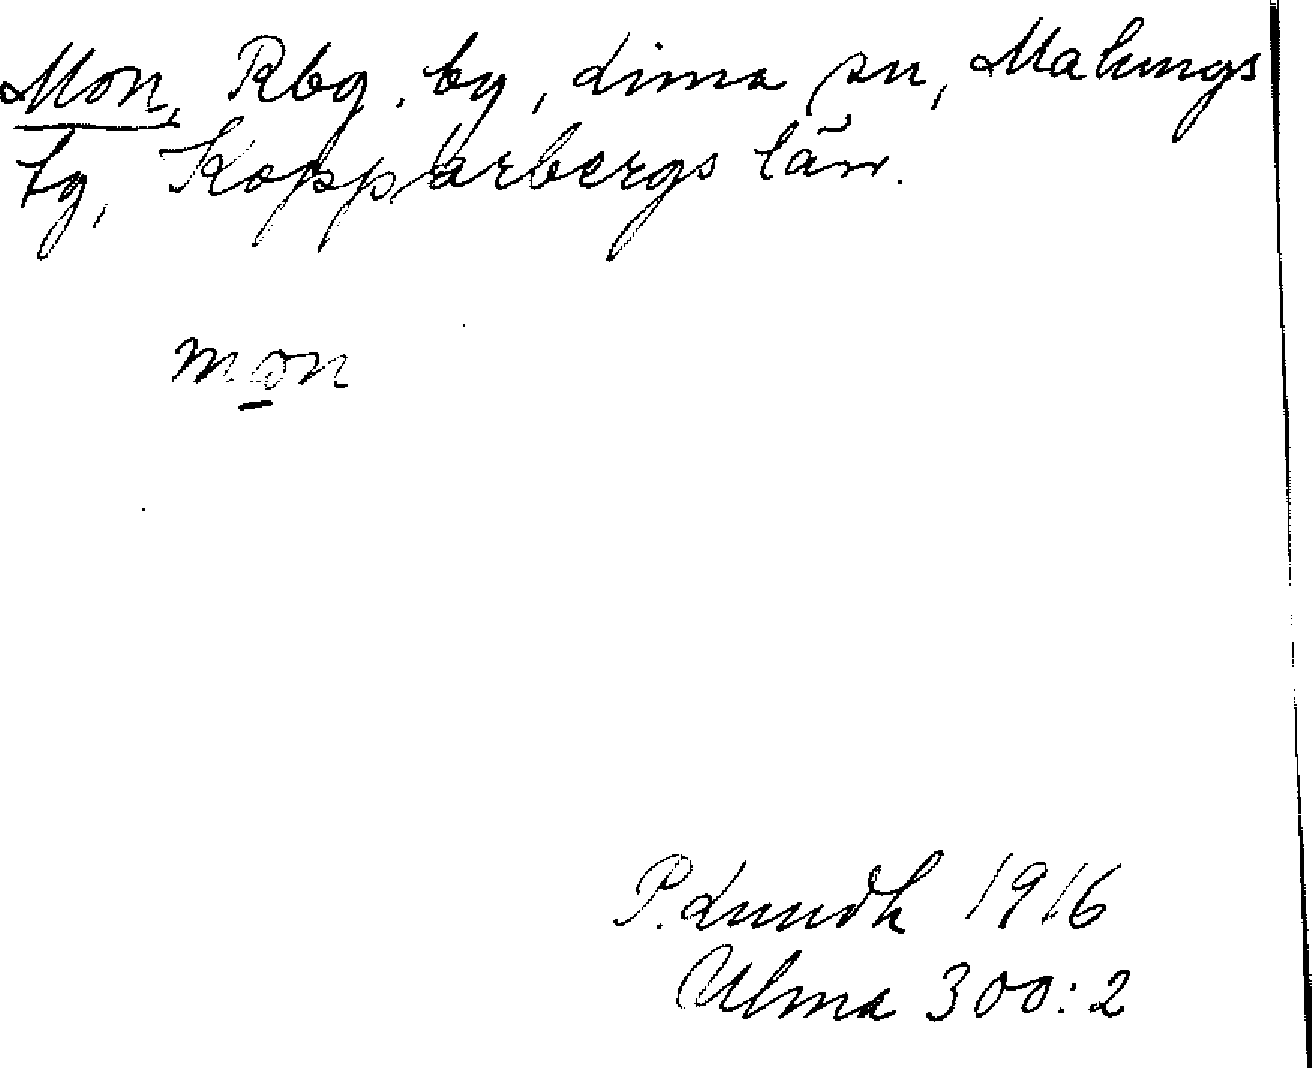 Mon, Rbg. by, Lima sn, Malungs
tg, Kopparbergs län.
mon
P. Lundh 1916
Ulma 300:2